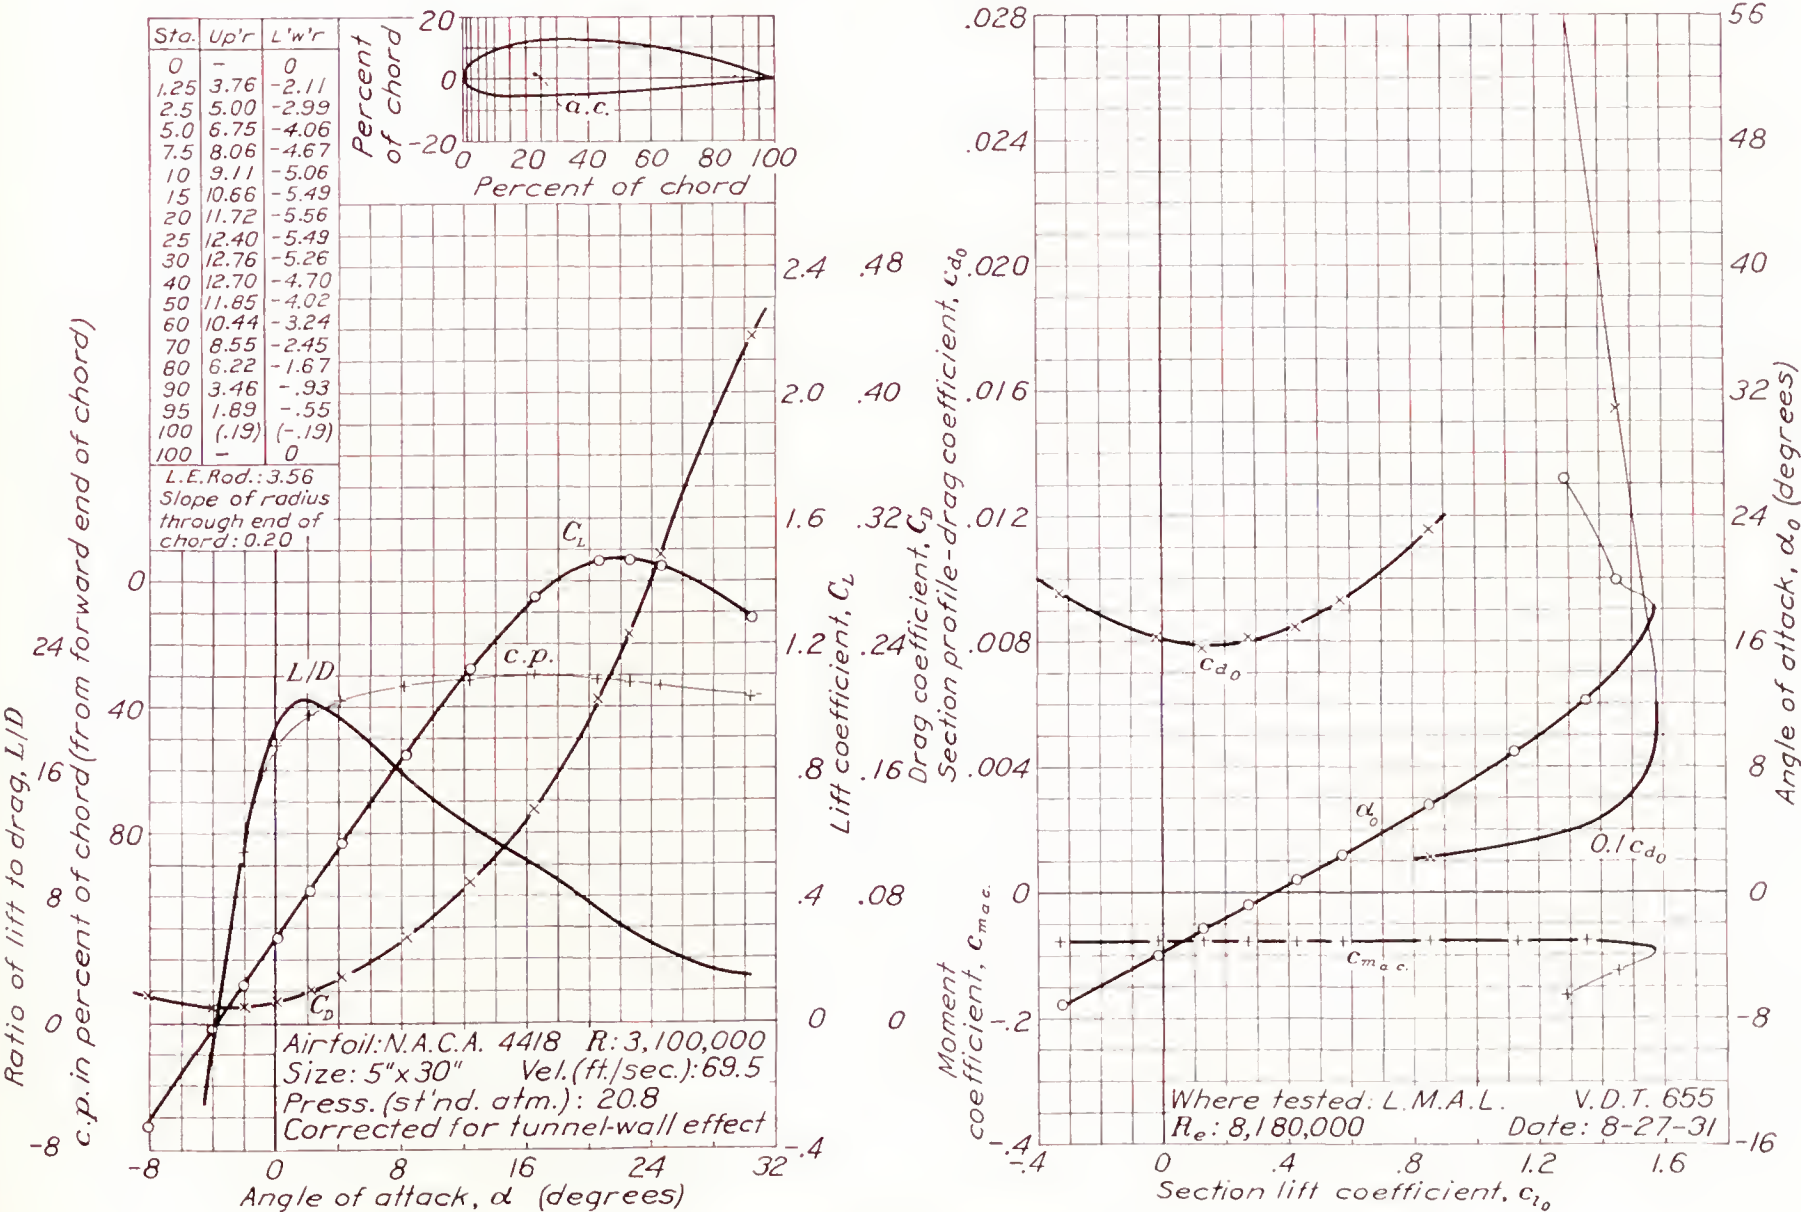 Sta. Up'r L'w'r
0 – 0
1.25 3.76 -2.11
2.5 5.00 -2.99
5.0 6.75 -4.06
7.5 8.06 -4.67
10 9.11 -5.06
15 10.66 -5.49
20 11.72 -5.56
25 12.40 -5.49
30 12.76 -5.26
40 12.70 -4.70
50 11.85 -4.02
60 10.44 -3.24
70 8.55 -2.45
80 6.22 -1.67
90 3.46 -.93
95 1.89 -.55
100 (.19) (-.19)
100 – 0
L.E.Rad.: 3.56
Slope of radius
through end of
chord: 0.20
Percent
of chord
20
0
-20
a.c.
0 20 40 60 80 100
Percent of chord
Ratio of lift to drag, L/D
24
16
8
0
-8
c.p. in percent of chord (from forward end of chord)
0
40
80
C_L
L/D
c.p.
C_D
2.4
2.0
1.6
1.2
.8
.4
0
-.4
Lift coefficient, C_L
.48
.40
.32
.24
.16
.08
0
Drag coefficient, C_D
Airfoil: N.A.C.A. 4418 R: 3,100,000
Size: 5"x30" Vel.(ft./sec.): 69.5
Press. (st'nd. atm.): 20.8
Corrected for tunnel-wall effect
-8 0 8 16 24 32
Angle of attack, α (degrees)
Section profile-drag coefficient, c_d0
.028
.024
.020
.016
.012
.008
.004
0
-.2
-.4
Moment
coefficient, c_m a.c.
c_d0
α_0
0.1 c_d0
c_m a.c.
56
48
40
32
24
16
8
0
-8
-16
Angle of attack, α_0 (degrees)
Where tested: L.M.A.L. V.D.T. 655
R_e: 8,180,000 Date: 8-27-31
-.4 0 .4 .8 1.2 1.6
Section lift coefficient, c_l0